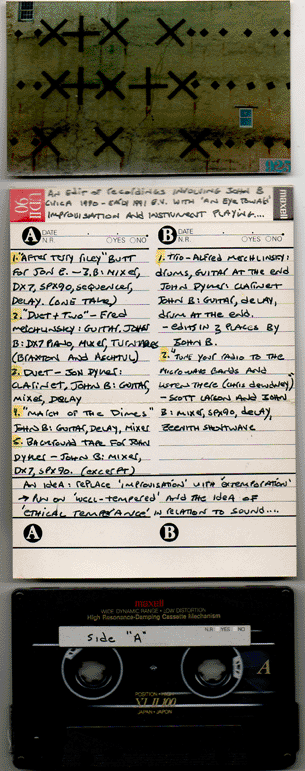 AN EDIT OF RECORDINGS INVOLVING JOHN B
CIRCA 1990 - EARLY 1991 E.V. WITH 'AN EYE TOWARD'
IMPROVISATION AND INSTRUMENT PLAYING....
UDII 90
maxell
A DATE
N.R. YES NO
B DATE
N.R. YES NO
1. "AFTER TERRY RILEY" BUTT
FOR JON E. - J.B: MIXER,
DX7, SPX90, SEQUENCER,
DELAY. (ONE TAKE)
2. "DUET + TWO" - FRED
MECHLINSKY: GUITAR. JOHN
B: DX7 PIANO, MIXER, TURNTABLES
(BRAXTON AND
3. DUET - JON DYKER:
CLARINET, JOHN B: GUITAR,
MIXER, DELAY
4. "MARCH OF THE DIMES"
JOHN B: GUITAR, DELAY, MIXER
5. BACKGROUND TAPE FOR JOHN
DYKER - JOHN B: MIXER,
DX7, SPX90. (EXCERPT)
1. TRIO - ALFRED MECHLINSKY:
DRUMS, GUITAR AT THE END
JOHN DYKER: CLARINET
JOHN B: GUITAR, DELAY,
DRUM AT THE END.
- EDITS IN 3 PLACES BY
JOHN B.
2. "TUNE YOUR RADIO TO THE
MICROWAVE BANDS AND
LISTEN THERE (CHRIS
- SCOTT LARSON AND JOHN
B: MIXER, SPX90, DELAY,
ZEENITH SHORTWAVE
AN IDEA: REPLACE 'IMPROVISATION' WITH 'EXTEMPORATION'
→ PUN ON 'WELL-TEMPERED' AND THE IDEA OF
'ETHICAL TEMPERANCE' IN RELATION TO SOUND....
A B
maxell
WIDE DYNAMIC RANGE • LOW DISTORTION
High Resonance-Damping Cassette Mechanism
N.R. YES NO
Side "A"
A
POSITION • HIGH
XLII 100
JAPAN • JAPON